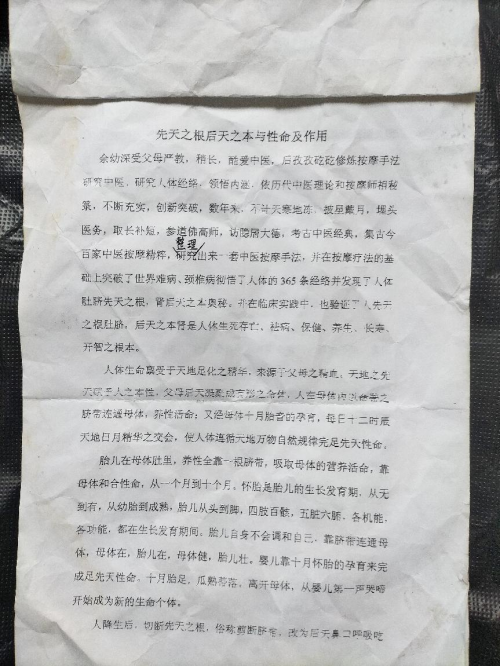 先天之根后天之本与性命及作用
余幼深受父母严教，稍长，酷爱中医，后孜孜矻矻修炼按摩手法
研究中医，研究人体经络，领悟内涵，依历代中医理论和按摩师祖秘
箓，不断充实，创新突破，数年来，不计天寒地冻，披星戴月，埋头
医务，取长补短，参道佛高师，访隐居大德，考古中医经典，集古今
整理
百家中医按摩精粹，研究出来一套中医按摩手法，并在按摩疗法的基
础上突破了世界难病、颈椎病彻悟了人体的365条经络并发现了人体
肚脐先天之根，肾后天之本奥秘。并在临床实践中，也验证了人先天
之根肚脐，后天之本肾是人体生死存亡、祛病、保健、养生、长寿、
开智之根本。
人体生命禀受于天地造化之精华，来源于父母之精血，天地之先
天 人之本性，父母后天 之 体，人在母体内以
脐带连通母体，养性活命；又经母体十月胎育的孕育，每日十二时辰
天地日月精华之交会，使人体遵循天地万物自然规律完足先天性命。
胎儿在母体肚里，养性全靠一根脐带，吸取母体的营养活命，靠
母体和合性命，从一个月到十个月。怀胎是胎儿的生长发育期，从无
到有，从幼胎到成熟，胎儿从头到脚，四肢百骸，五脏六腑，各机能，
各功能，都在生长发育期间。胎儿自身不会调和自己，靠脐带连通母
体，母体在，胎儿在，母体健，胎儿壮。婴儿靠十月怀胎的孕育来完
成足先天性命，十月胎足，瓜熟蒂落，离开母体，从婴儿第一声哭啼
开始成为新的生命个体。
人降生后，切断先天之根，俗称剪断脐带，改为后天鼻口呼吸吃